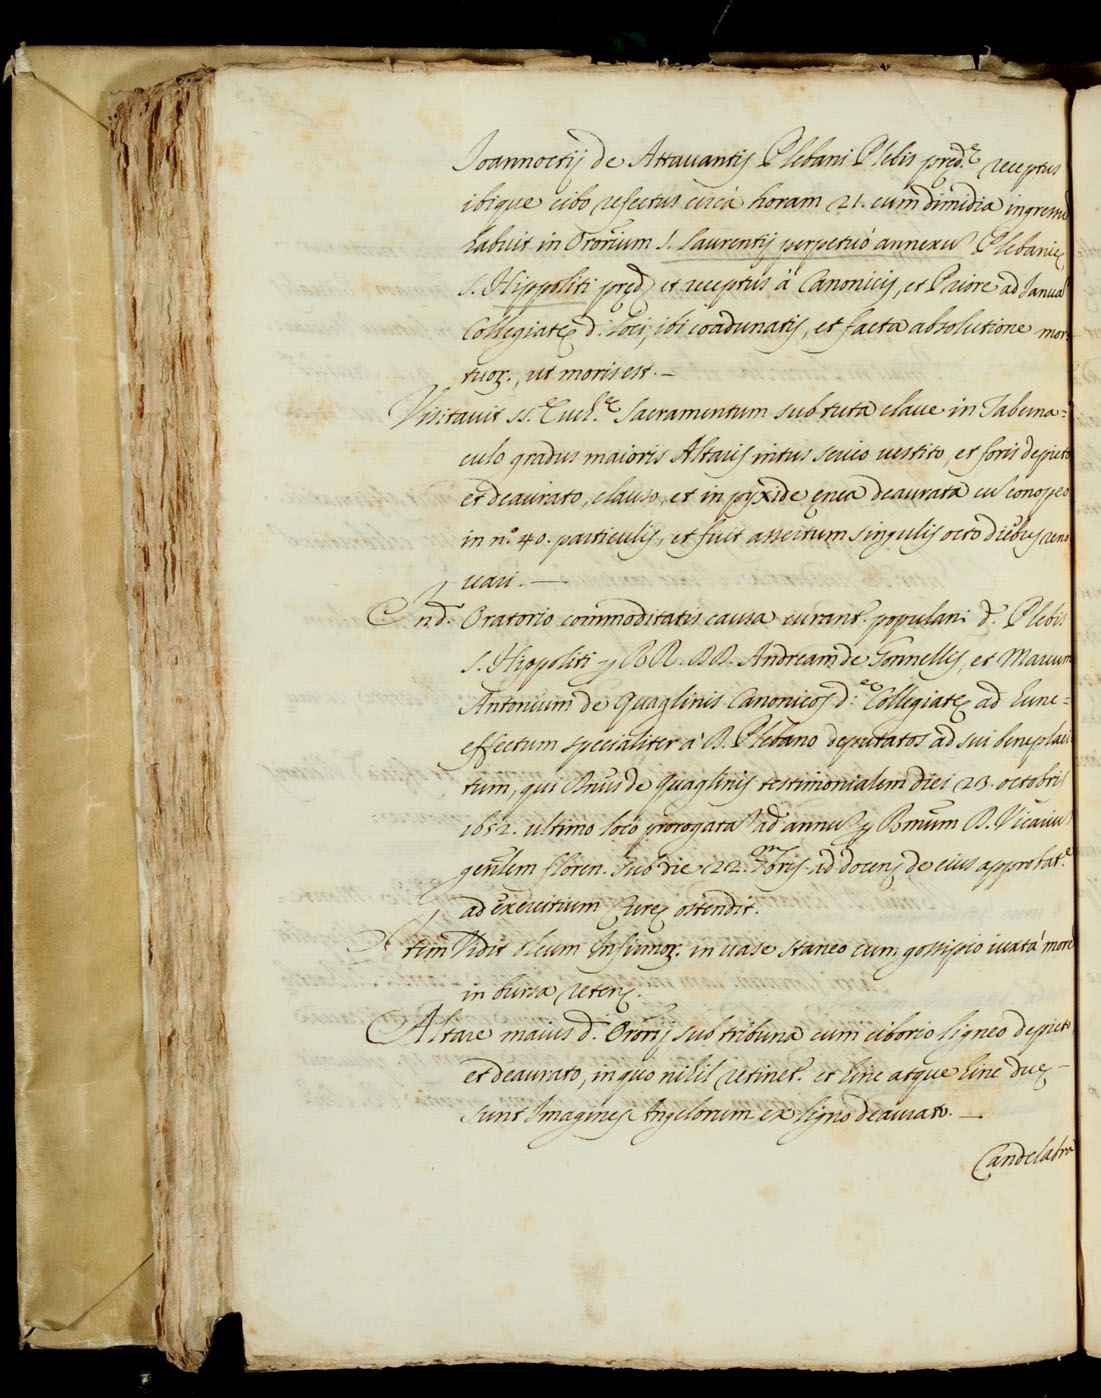 Joannoctij de Attavantis Plebani Plebis pręd.e receptus
ibique cibo refectus circà horam 21. cum dimidia ingressũ
habuit in Ororium S. Laurentij perpetuò annexũ Plebanię
S. Hippoliti pręd.ę et receptus à Canonicis, et Priore ad Januã
Collegiatę d. loci, ibi coadunatis, et facta absolutione mor-
tuor., ut moris est. —
Visitavit SS. Euch.ę Sacramentum sub tuta clave in Taberna=
culo gradus maioris Altaris intus serico vestito, et foris depicto
et deaurato, clauso, et in pyxide ęnea deaurata cũ conopeo
in n.o 40. particulis, et fuit assertum singulis octo diebus reno
vari. —
In d. Oratorio commoditatis causa curant. populani d. Plebis
S. Hippoliti p RR. DD. Andream de Tonnellis, et Marcum
Antonium de Quaglinis Canonicos d. Collegiatę ad hunc=
effectum specialiter à D. Plebano deputatos ad sui beneplaci-
tum, qui Rñus de Quaglinis testimonialem diei 23. octobris
1652. ultimo loco prorogatã ad annũ p Rmum D. Vicariũ
genlem floren. sub die 22. 9mbris ad docens de eius approbat.e
ad exercitium Curę ostendit.
Item Vidit oleum Infirmor. in vase staneo cum gossipio iuxtà morẽ
in bursa retens.
Altare maius d. Ororij sub tribuna cum ciborio ligneo depicto
et deaurato, in quo nihil retinet. et hinc atque hinc duę —
sunt Imagines Angelorum ex ligno deaurato. —
Candelabra